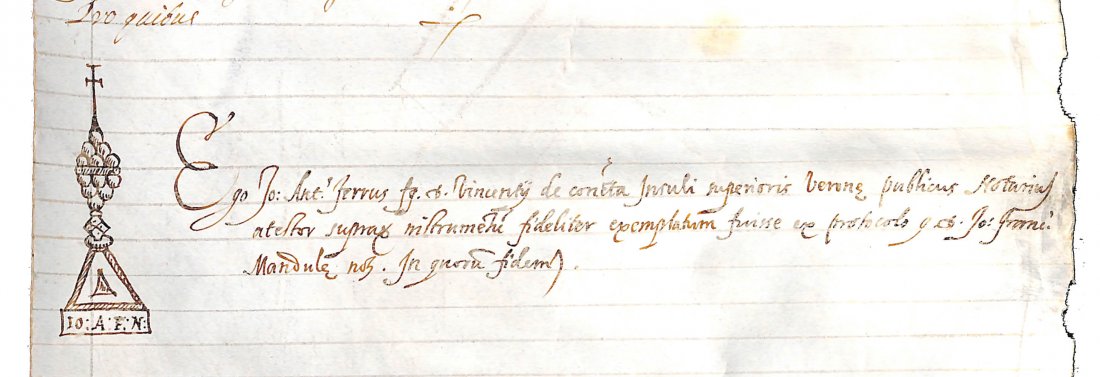 Pro quibus
Ego Jo: Ant.s ferrus fq. d. Vincentij de contta Insuli superioris Veronę publicus Notarius
atestor suprax instrumetū fideliter exemplatum fuisse ex protocolo q. d. Jo: franci:
Mandulę not. In quorū fidem
IO: A: F: N: